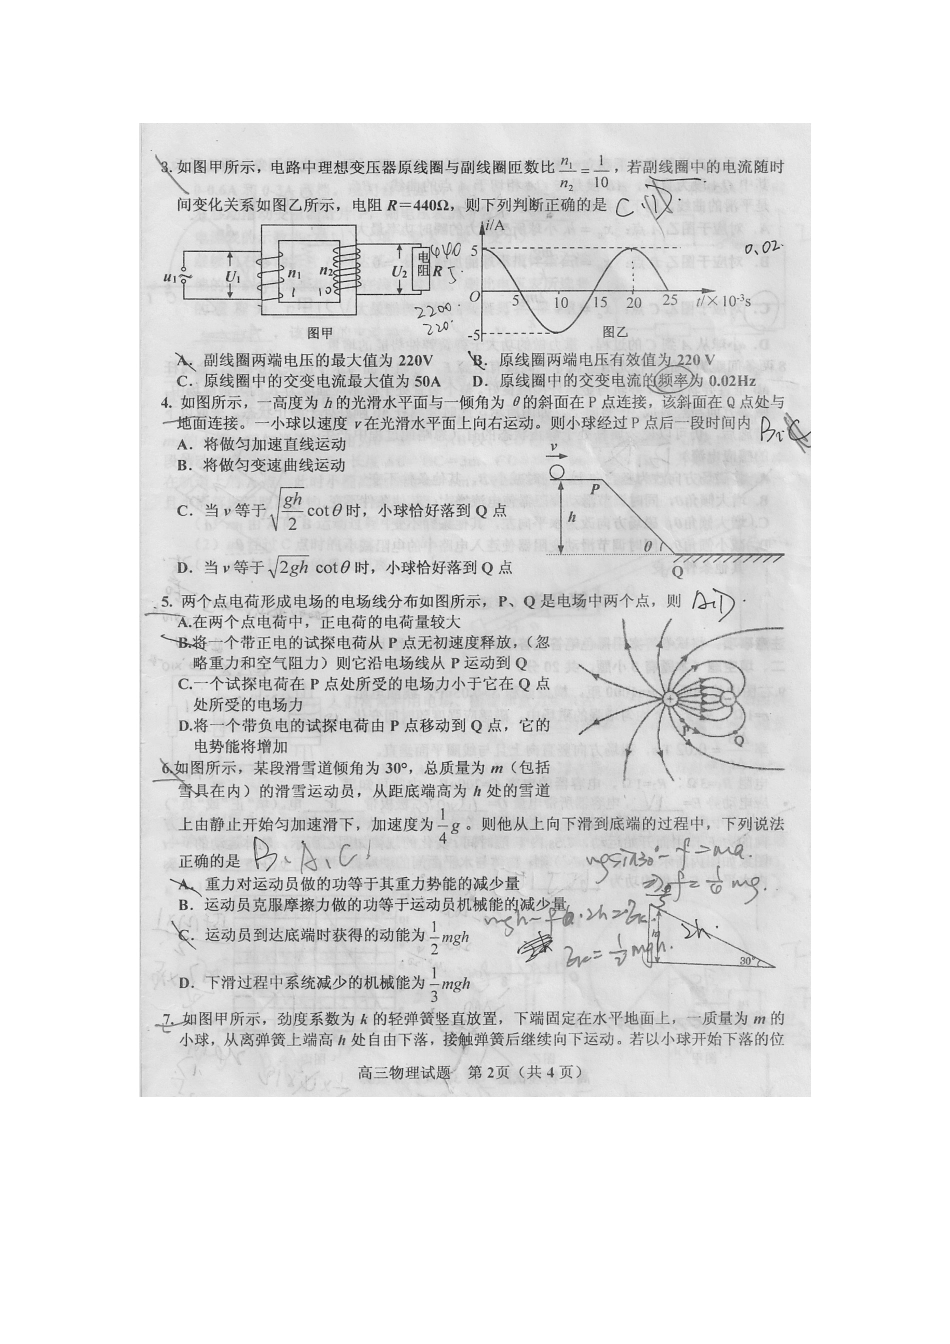 3. 如图甲所示，电路中理想变压器原线圈与副线圈匝数比 n₁/n₂ = 1/10，若副线圈中的电流随时
间变化关系如图乙所示，电阻 R=440Ω，则下列判断正确的是 C、D
u₁ ~ U₁ n₁ n₂ U₂ 电阻 R
1 10 440 5
2200
220
图甲
i/A
5
O 5 10 15 20 25 t/×10⁻³s
-5
图乙
0.02
A．副线圈两端电压的最大值为 220V B．原线圈两端电压有效值为 220 V
C．原线圈中的交变电流最大值为 50A D．原线圈中的交变电流的频率为 0.02Hz
4. 如图所示，一高度为 h 的光滑水平面与一倾角为 θ 的斜面在 P 点连接，该斜面在 Q 点处与
地面连接。一小球以速度 v 在光滑水平面上向右运动。则小球经过 P 点后一段时间内 B、C
A．将做匀加速直线运动
B．将做匀变速曲线运动
C．当 v 等于 √(gh/2) cotθ 时，小球恰好落到 Q 点
D．当 v 等于 √(2gh) cotθ 时，小球恰好落到 Q 点
v
P
h
θ
Q
5. 两个点电荷形成电场的电场线分布如图所示，P、Q 是电场中两个点，则 A、D
A.在两个点电荷中，正电荷的电荷量较大
B.将一个带正电的试探电荷从 P 点无初速度释放，（忽
略重力和空气阻力）则它沿电场线从 P 运动到 Q
C.一个试探电荷在 P 点处所受的电场力小于它在 Q 点
处所受的电场力
D.将一个带负电的试探电荷由 P 点移动到 Q 点，它的
电势能将增加
+ −
P
Q
6.如图所示，某段滑雪道倾角为 30°，总质量为 m（包括
雪具在内）的滑雪运动员，从距底端高为 h 处的雪道
上由静止开始匀加速滑下，加速度为 1/4 g 。则他从上向下滑到底端的过程中，下列说法
正确的是 B、A、C
mgsin30°−f=ma
f=1/6 mg.
A．重力对运动员做的功等于其重力势能的减少量
B．运动员克服摩擦力做的功等于运动员机械能的减少量
C．运动员到达底端时获得的动能为 1/2 mgh
D．下滑过程中系统减少的机械能为 1/3 mgh
mgh−f·2h=Ek
Ek=1/2 mgh.
2h
30°
7. 如图甲所示，劲度系数为 k 的轻弹簧竖直放置，下端固定在水平地面上，一质量为 m 的
小球，从离弹簧上端高 h 处自由下落，接触弹簧后继续向下运动。若以小球开始下落的位
高三物理试题 第 2页（共 4 页）